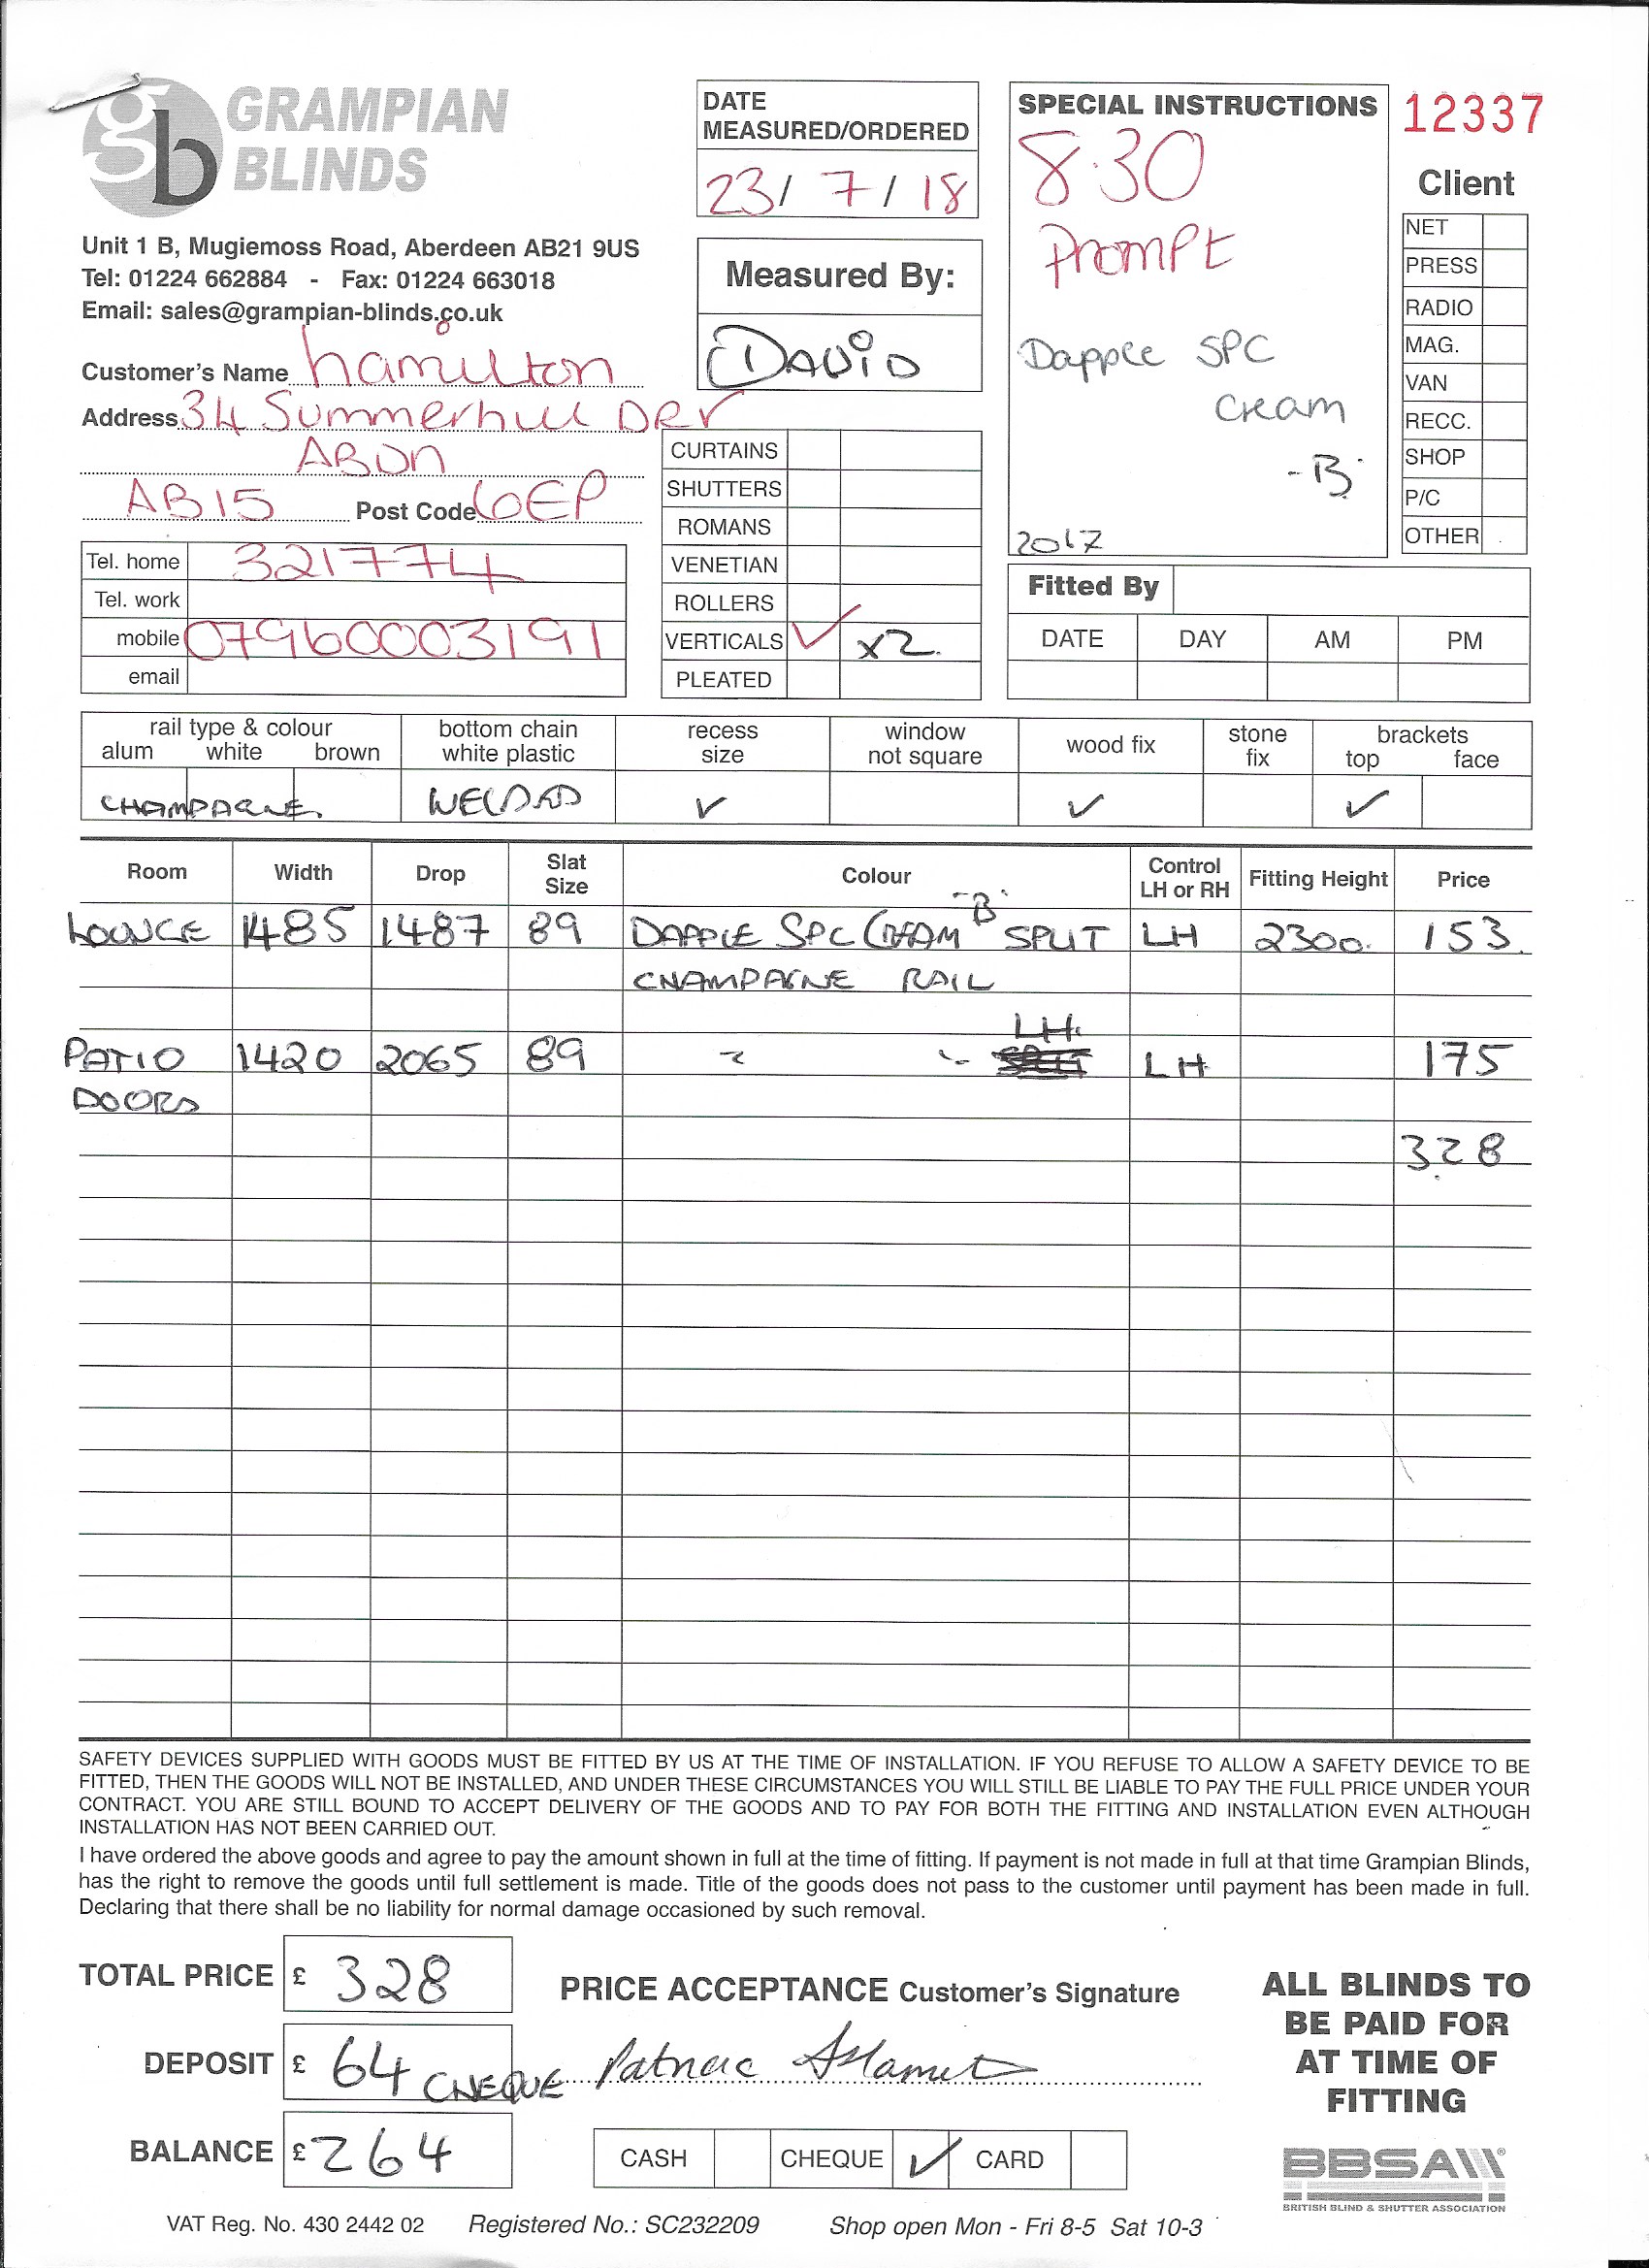 gb GRAMPIAN BLINDS
Unit 1 B, Mugiemoss Road, Aberdeen AB21 9US
Tel: 01224 662884 - Fax: 01224 663018
Email: sales@grampian-blinds.co.uk
Customer's Name hamilton
Address 34 Summerhill DRV
ABDN
AB15 Post Code 6EP
Tel. home 321774
Tel. work
mobile 07960003191
email
DATE MEASURED/ORDERED
23/7/18
Measured By:
DAVID
CURTAINS
SHUTTERS
ROMANS
VENETIAN
ROLLERS
VERTICALS ✓ x2.
PLEATED
SPECIAL INSTRUCTIONS
8.30
Prompt
Dapple SPC
Cream
-B-
2017
12337
Client
NET
PRESS
RADIO
MAG.
VAN
RECC.
SHOP
P/C
OTHER
Fitted By
DATE DAY AM PM
rail type & colour bottom chain recess window wood fix stone brackets
alum white brown white plastic size not square fix top face
CHAMPAGNE. WELDED ✓ ✓ ✓
Room Width Drop Slat Size Colour Control LH or RH Fitting Height Price
LOUNGE 1485 1487 89 DAPPLE SPC CREAM "B" SPLIT LH 2300. 153.
CHAMPAGNE RAIL
LH.
PATIO 1420 2065 89 " " LH 175
DOORS
328
SAFETY DEVICES SUPPLIED WITH GOODS MUST BE FITTED BY US AT THE TIME OF INSTALLATION. IF YOU REFUSE TO ALLOW A SAFETY DEVICE TO BE
FITTED, THEN THE GOODS WILL NOT BE INSTALLED, AND UNDER THESE CIRCUMSTANCES YOU WILL STILL BE LIABLE TO PAY THE FULL PRICE UNDER YOUR
CONTRACT. YOU ARE STILL BOUND TO ACCEPT DELIVERY OF THE GOODS AND TO PAY FOR BOTH THE FITTING AND INSTALLATION EVEN ALTHOUGH
INSTALLATION HAS NOT BEEN CARRIED OUT.
I have ordered the above goods and agree to pay the amount shown in full at the time of fitting. If payment is not made in full at that time Grampian Blinds,
has the right to remove the goods until full settlement is made. Title of the goods does not pass to the customer until payment has been made in full.
Declaring that there shall be no liability for normal damage occasioned by such removal.
TOTAL PRICE £ 328
DEPOSIT £ 64 CHEQUE
BALANCE £ 264
PRICE ACCEPTANCE Customer's Signature
CASH CHEQUE ✓ CARD
ALL BLINDS TO
BE PAID FOR
AT TIME OF
FITTING
BBSA
BRITISH BLIND & SHUTTER ASSOCIATION
VAT Reg. No. 430 2442 02 Registered No.: SC232209 Shop open Mon - Fri 8-5 Sat 10-3